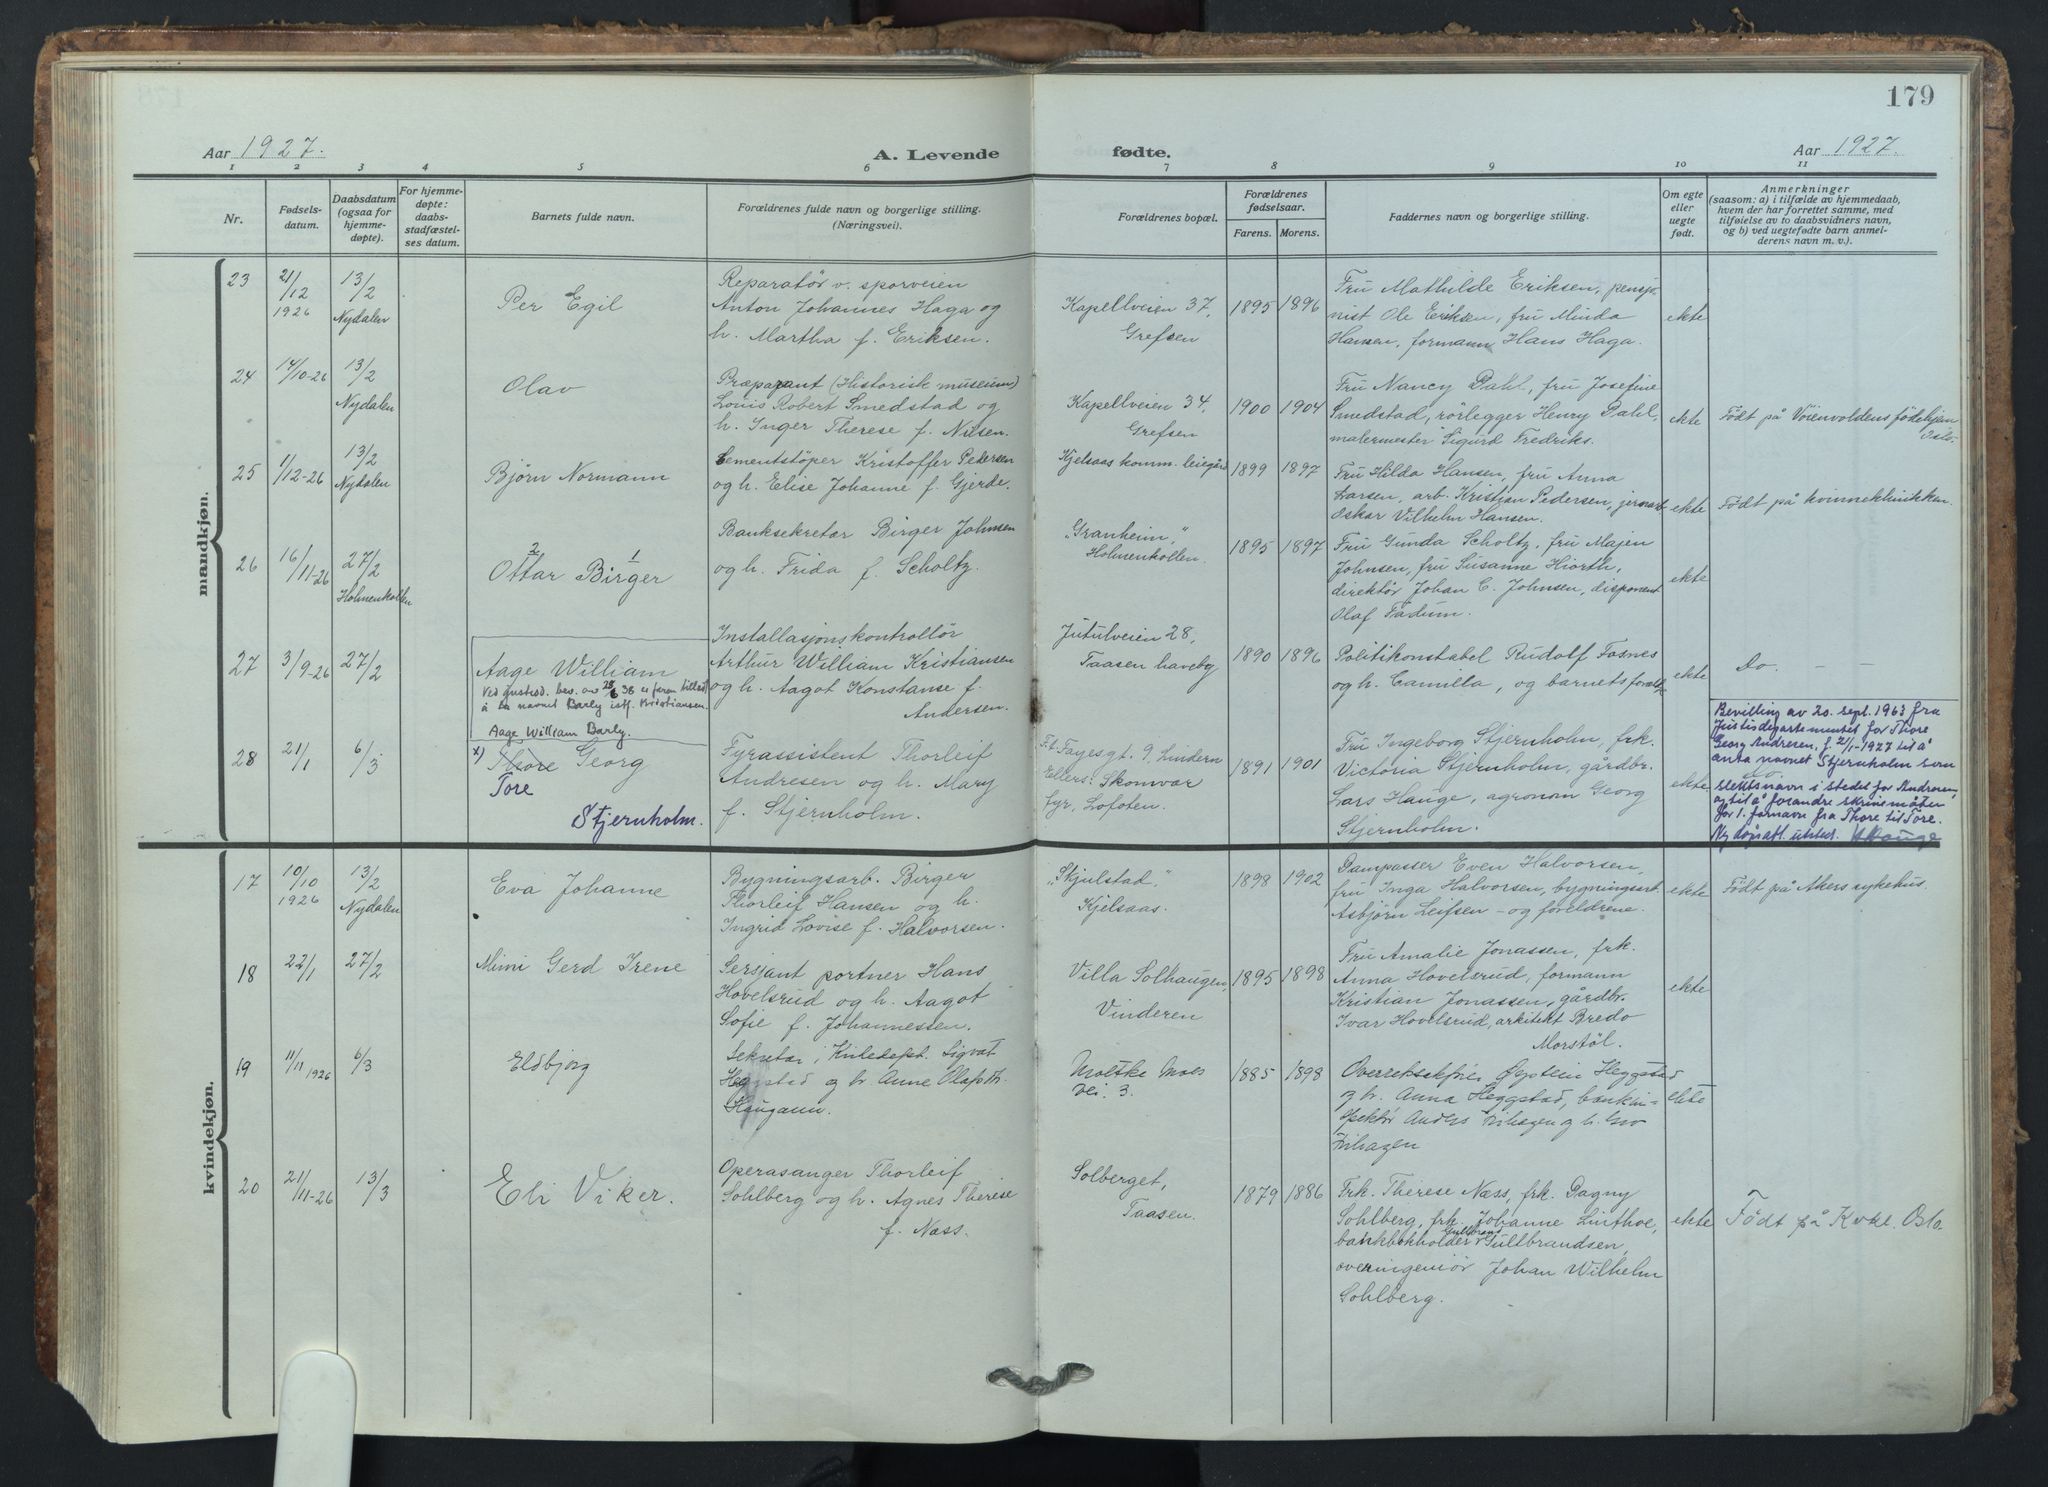 179
Aar 1927.
A. Levende fødte.
Aar 1927.
1 2 3 4 5 6 7 8 9 10 11
Nr.
Fødsels-
datum.
Daabsdatum
(ogsaa for
hjemme-
døpte).
For hjemme-
døpte:
daabs-
stadfæstel-
ses datum.
Barnets fulde navn.
Forældrenes fulde navn og borgerlige stilling.
(Næringsvei).
Forældrenes bopæl.
Forældrenes
fødselsaar.
Farens. Morens.
Faddernes navn og borgerlige stilling.
Om egte
eller
uegte
født.
Anmerkninger
(saasom: a) i tilfælde av hjemmedaab,
hvem der har forrettet samme, med
tilføielse av to daabsvidners navn,
og b) ved uegtefødte barn anmel-
derens navn m. v.).
mandkjøn.
23
21/12
1926
13/2
Nydalen
Per Egil
Reparatør v. sporveien
Anton Johannes Haga og
h. Martha f. Eriksen.
Kapellveien 37,
Grefsen
1895 1896
Fru Mathilde Eriksen, pensjo-
nist Ole Eriksen, fru Minda
Hansen, formann Hans Haga.
ekte
24
14/10-26
13/2
Nydalen
Olav
Præparant (Historisk museum)
Louis Robert Smedstad og
h. Inger Therese f. Nilsen.
Kapellveien 34,
Grefsen
1900 1904
Fru Nancy Dahl, fru Josefine
Smedstad, rørlegger Henry Dahl,
malermester Sigurd Fredriks.
ekte
Født på Vøienvoldens fødehjem
Oslo.
25
1/12-26
13/2
Nydalen
Bjørn Normann
Sementstøper Kristoffer Pedersen
og h. Elise Johanne f. Gjerde.
Kjelsaas komm. leiegård
1899 1897
Fru Hilda Hansen, fru Anna
Larsen, arb. Kristian Pedersen, jernarb.
Oskar Vilhelm Hansen.
ekte
Født på kvinneklinikken.
26
16/11-26
27/2
Holmenkollen
2 1
Ottar Birger
Banksekretær Birger Johnsen
og h. Frida f. Scholtz.
"Granheim",
Holmenkollen.
1895 1897
Fru Gunda Scholtz, fru Majen
Johnsen, fru Susanne Hiorth,
direktør Johan C. Johnsen, disponent
Olaf Fadum.
ekte
27
3/9-26
27/2
Aage William
Ved bev. av 28/6 38 er faren tillatt
å ta navnet Barly istf. Kristiansen.
Aage William Barly.
Installasjonskontrollør
Arthur William Kristiansen
og h. Aagot Konstanse f.
Andersen.
Jutulveien 28,
Taasen haveby
1890 1896
Politikonstabel Rudolf Fosnes
og h. Camilla, og barnets foreldre
ekte
Do. — —
28
21/1
6/3
x) Thore Georg
Tore
Stjernholm.
Fyrassistent Thorleif
Andresen og h. Mary
f. Stjernholm.
F.t. Fagesgt. 9, Lindern
Ellers: Skomvær
fyr, Lofoten.
1891 1901
Fru Ingeborg Stjernholm, frk.
Victoria Stjernholm, gårdbr.
Lars Hauge, agronom Georg
Stjernholm.
ekte
Bevilling av 20. sept. 1963 fra
Justisdepartementet for Thore
Georg Andresen, f. 21/1-1927 til å
anta navnet Stjernholm som
slektsnavn i stedet for Andresen,
og til å forandre skrivemåten
for 1. fornavn fra Thore til Tore.
Ny dåpsatt. utsted.
kvindekjøn.
17
10/10
1926
13/2
Nydalen
Eva Johanne
Bygningsarb. Birger
Thorleif Hansen og h.
Ingrid Lovise f. Halvorsen.
"Skjulstad,"
Kjelsaas.
1898 1902
Dampasser Even Halvorsen,
fru Inga Halvorsen, bygningsarb.
Asbjørn Leifsen - og foreldrene.
ekte
Født på Akers sykehus.
18
22/1
27/2
Mimi Gerd Irene
Sersjant portner Hans
Hovelsrud og h. Aagot
Sofie f. Johannessen.
Villa Solhaugen,
Vinderen
1895 1898
Fru Amalie Jonassen, frk.
Anna Hovelsrud, formann
Kristian Jonassen, gårdbr.
Ivar Hovelsrud, arkitekt Bredo
Morstøl.
ekte
19
11/11 1926
6/3
Eldbjørg
Sekretær i Kirkedept. Sigvat
Heggstad og h. Anne Olafsdtr.
Haugann.
Moltke Moes
vei. 3.
1885 1898
Overrettssakfører Øystein Heggstad
og h. Anna Heggstad, bankin-
spektør Anders Frihagen og h. Gro
Frihagen
ekte
20
21/11-26
13/3
Eli Viker.
Operasanger Thorleif
Sohlberg og h. Agnes Therese
f. Næss.
Solberget,
Taasen.
1879 1886
Frk. Therese Næss, frk. Dagny
Sohlberg, frk. Johanne Linthoe,
bankbokholder Gullbrand Gullbrandsen,
overingeniør Johan Wilhelm
Sohlberg.
ekte
Født på Kvkl. Oslo.